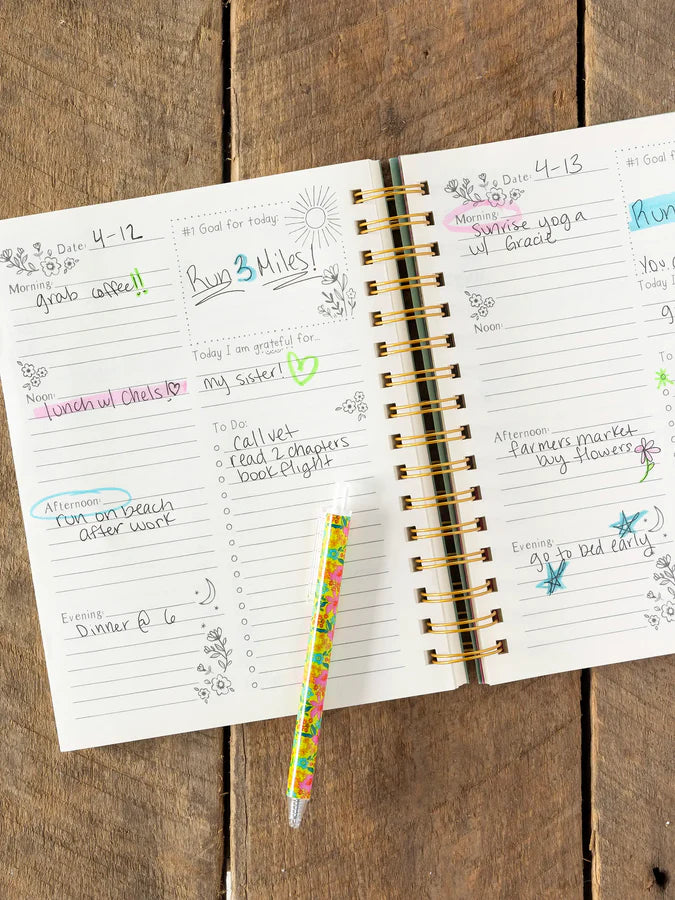 Date: 4-12
Morning:
grab coffee!!
Noon:
lunch w/ Chels!
Afternoon:
run on beach
after work
Evening:
Dinner @ 6
#1 Goal for today:
Run 3 Miles!
Today I am grateful for...
my sister!
To Do:
call vet
read 2 chapters
book flight
Date: 4-13
Morning:
sunrise yoga
w/ Gracie
Noon:
Afternoon:
farmers market
buy flowers
Evening:
go to bed early
#1 Goal f
Run
Today I
To